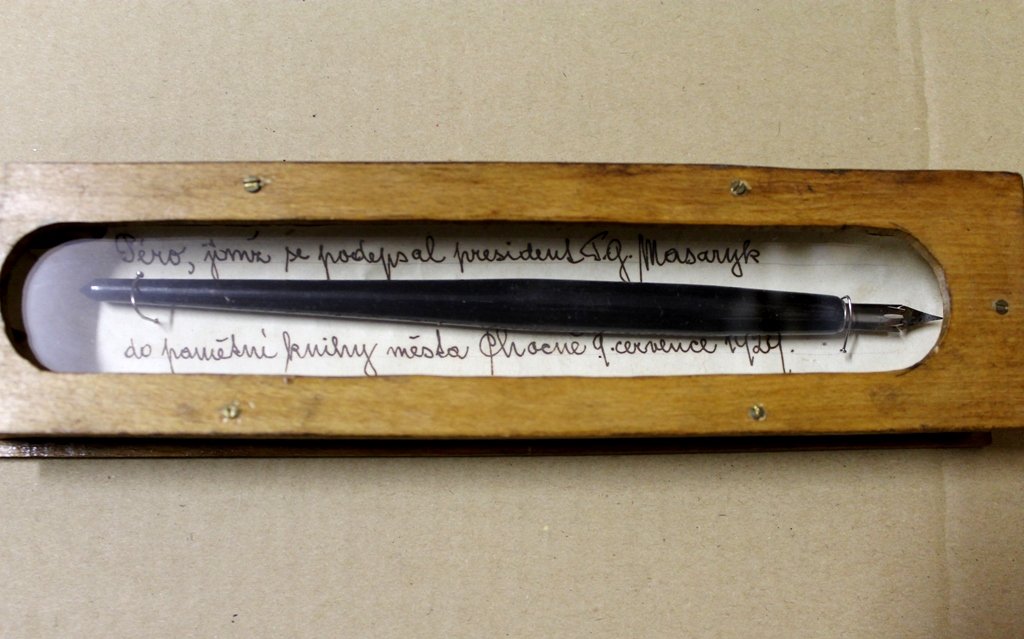 Péro, jímž se podepsal president T.G. Masaryk
do pamětní knihy města Chocně 9. července 1929.